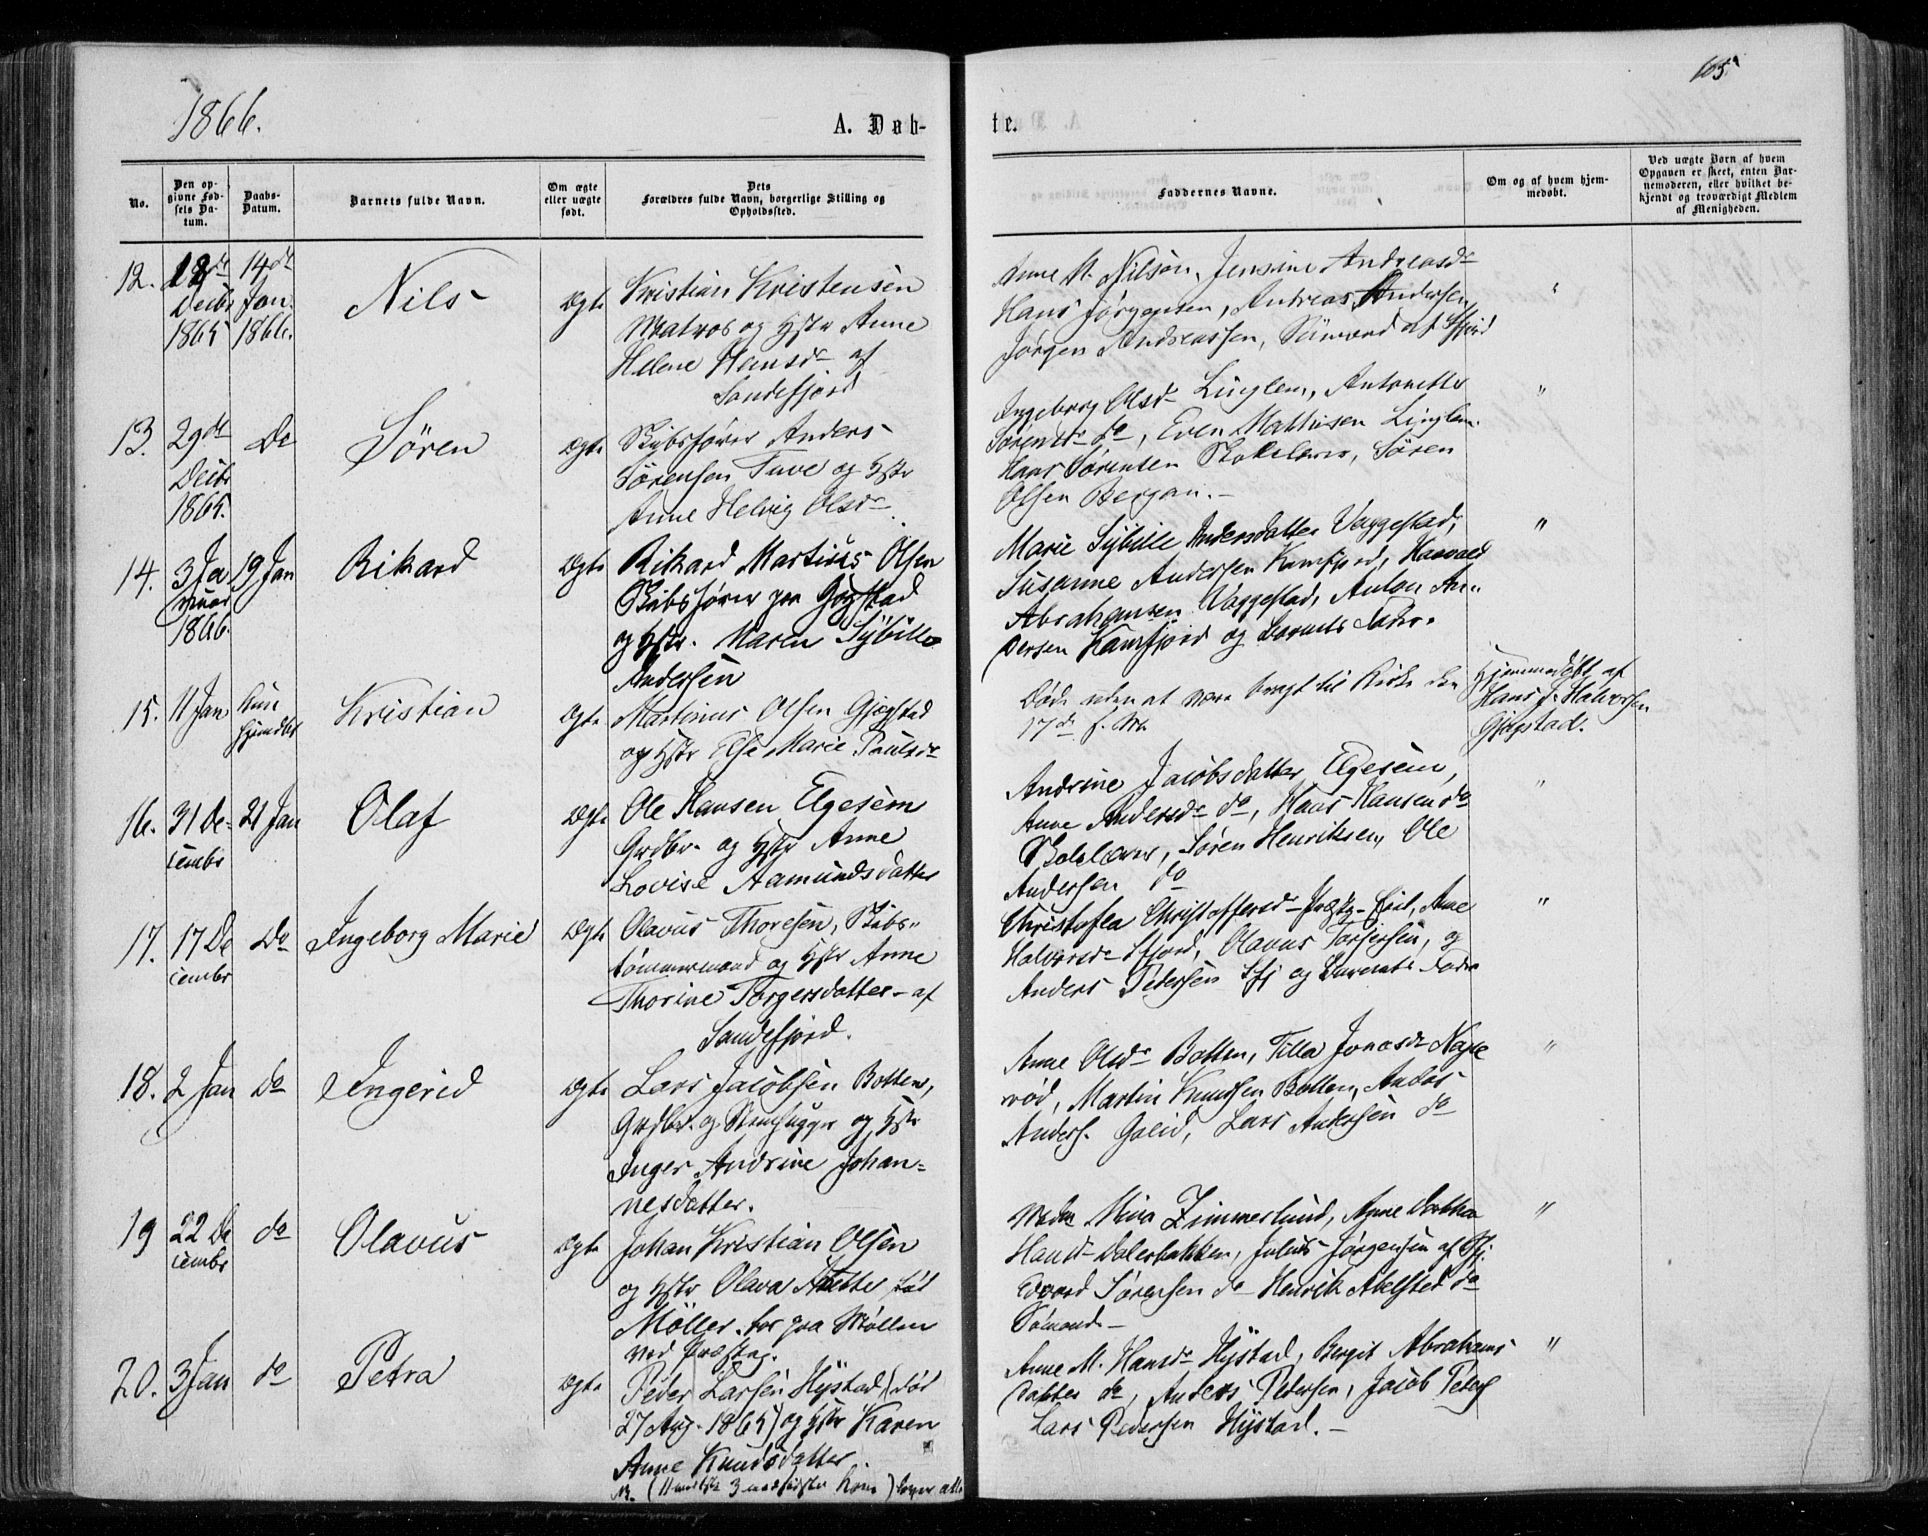 1866.
105
A. Døb-
te.
No.
Den op-
givne Fød-
sels Da-
tum.
Daabs-
Datum.
Barnets fulde Navn.
Om ægte
eller uægte
født.
Dets
Forældres fulde Navn, borgerlige Stilling og
Opholdssted.
Faddernes Navne.
Om og af hvem hjem-
medøbt.
Ved uægte Børn af hvem
Opgaven er skeet, enten Bar-
nemoderen, eller hvilket be-
kjendt og troværdigt Medlem
af Menigheden.
12.
Decbr
1865
14de
Jan.
1866.
Nils
Ægte
Kristian Kristensen
Matros og Hstr Anne
Helene Hansdr af
Sandefjord
Anne M. Nilsdn, Jensine Andreasdr
Hans Jørgensen, Andreas Andersen,
Jørgen Andreassen, Sømænd af Sfjord
"
13.
29de
Decbr
1865.
Do
Sören
Ægte
Skibsfører Anders
Sörensen Tuve og Hstr
Anne Helvig Olsdr
Ingeborg Olsdr Linglem, Antonette
Sørensdr do, Even Mathisen Linglem
Hans Sørensen Skolelærer, Søren
Olsen Bergan.
"
14.
3 Ja
nuar
1866.
19 Jan
Rikard
Ægte
Rikard Martinus Olsen
Skibsfører paa Gogstad
og Hstr. Maren Sybille
Andersen
Marie Sybille Andersdatter Vaggestad,
Susanne Andersen Kamfjord, Haavald
Abrahamsen Vaggestad, Anton An-
dersen Kamfjord og Barnets Fader.
"
15.
11 Jan
kun
hjemdbt
Kristian
Ægte
Martinus Olsen Gjogstad
og Hstr Else Marie Paulsdr
Døde uden at være bragt til Kirke den
17de f. M.
Hjemmedøbt af
Hans J. Halvorsen
Gjogstad.
16.
31 De-
cembr
21 Jan
Olaf
Ægte
Ole Hansen Elgesem
Grdbr. og Hstr Anne
Lovise Aamundsdatter
Andrine Jacobsdatter Elgesem,
Anne Andersdr do, Hans Hansen do
Skolelærer, Søren Henriksen, Ole
Andersen do
"
17.
17 De
cembr
Do
Ingeborg Marie
Ægte
Olavus Thoresen, Skibs-
tømmermand og Hstr Anne
Thorine Torgersdatter af
Sandefjord.
Christofla Christoffersdr Præstg. Eiet, Ane
Halvorsdr Sfjord, Olavus Torgersen, og
Anders Petersen Sfj og Barnets Fader
"
18.
2 Jan
Do
Ingerid
Ægte
Lars Jacobsen Botten,
Grdbr. og Stenhugger og Hstr
Inger Andrine Johan-
nesdatter.
Anne Olsdr Botten, Tilla Jonasdr Nape
rød, Martin Knudsen Botten, Anders
Anders. Golid, Lars Andersen do
"
19
22 De
cembr
do
Olavus
Ægte
Johan Kristian Olsen
og Hstr Olava Anette fød
Möller. bor paa Møllen
ved Præsteg.
Mina Zimmerlund, Anne Dorthea
Hansdr Dalerbakken, Julius Jørgensen af Sfj
Edvard Sörensen do Henrik Akelsted do
Sömænd
"
20.
3 Jan
do
Petra
Ægte
Peder Larsen Hystad (död
27 Aug. 1865) og Hstr Karen
Anne Knudsdatter.
Anne M. Hansdr Hystad, Bergit Abrahams
datter do, Anders Pedersen, Jacob Peders
Lars Pedersen Hystad.
"